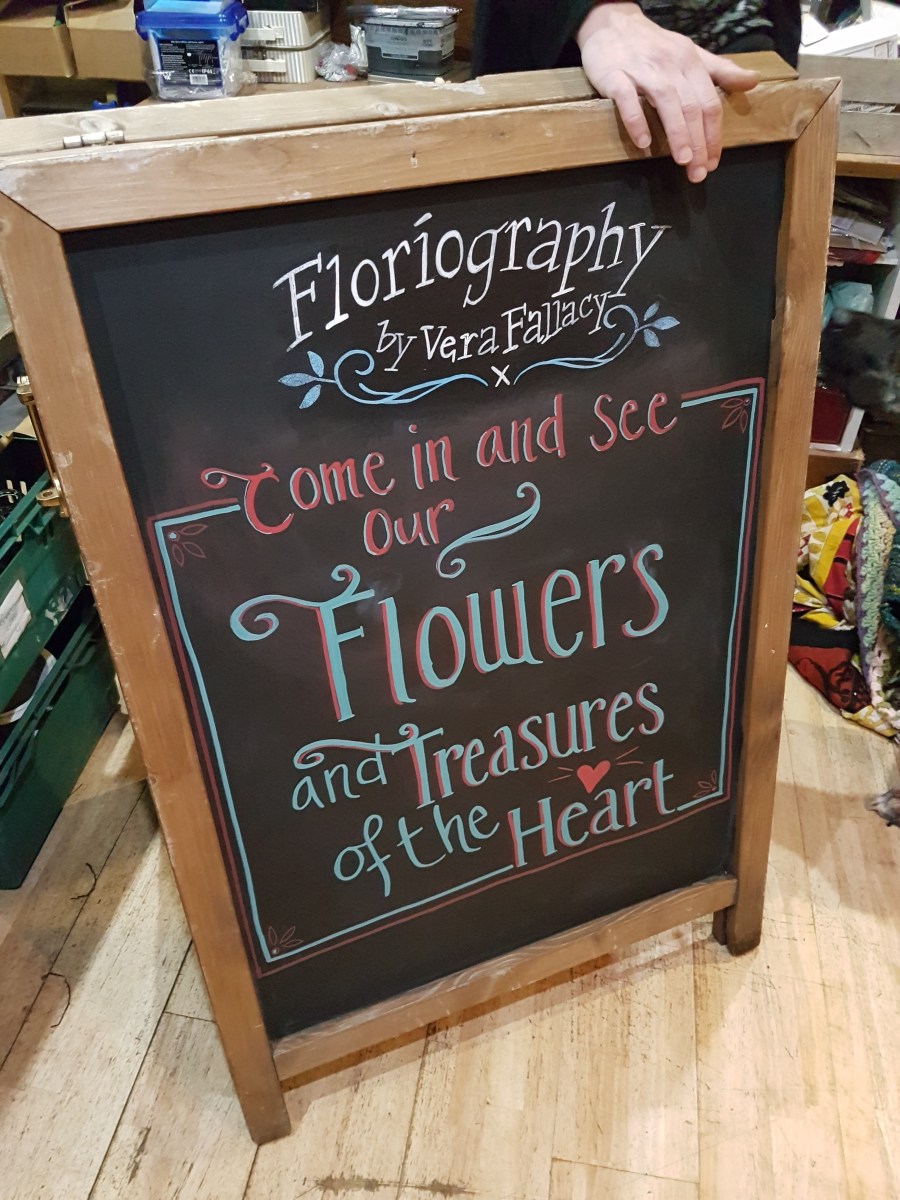 Floriography
by Vera Fallacy
x
Come in and see
our
Flowers
and Treasures
of the Heart